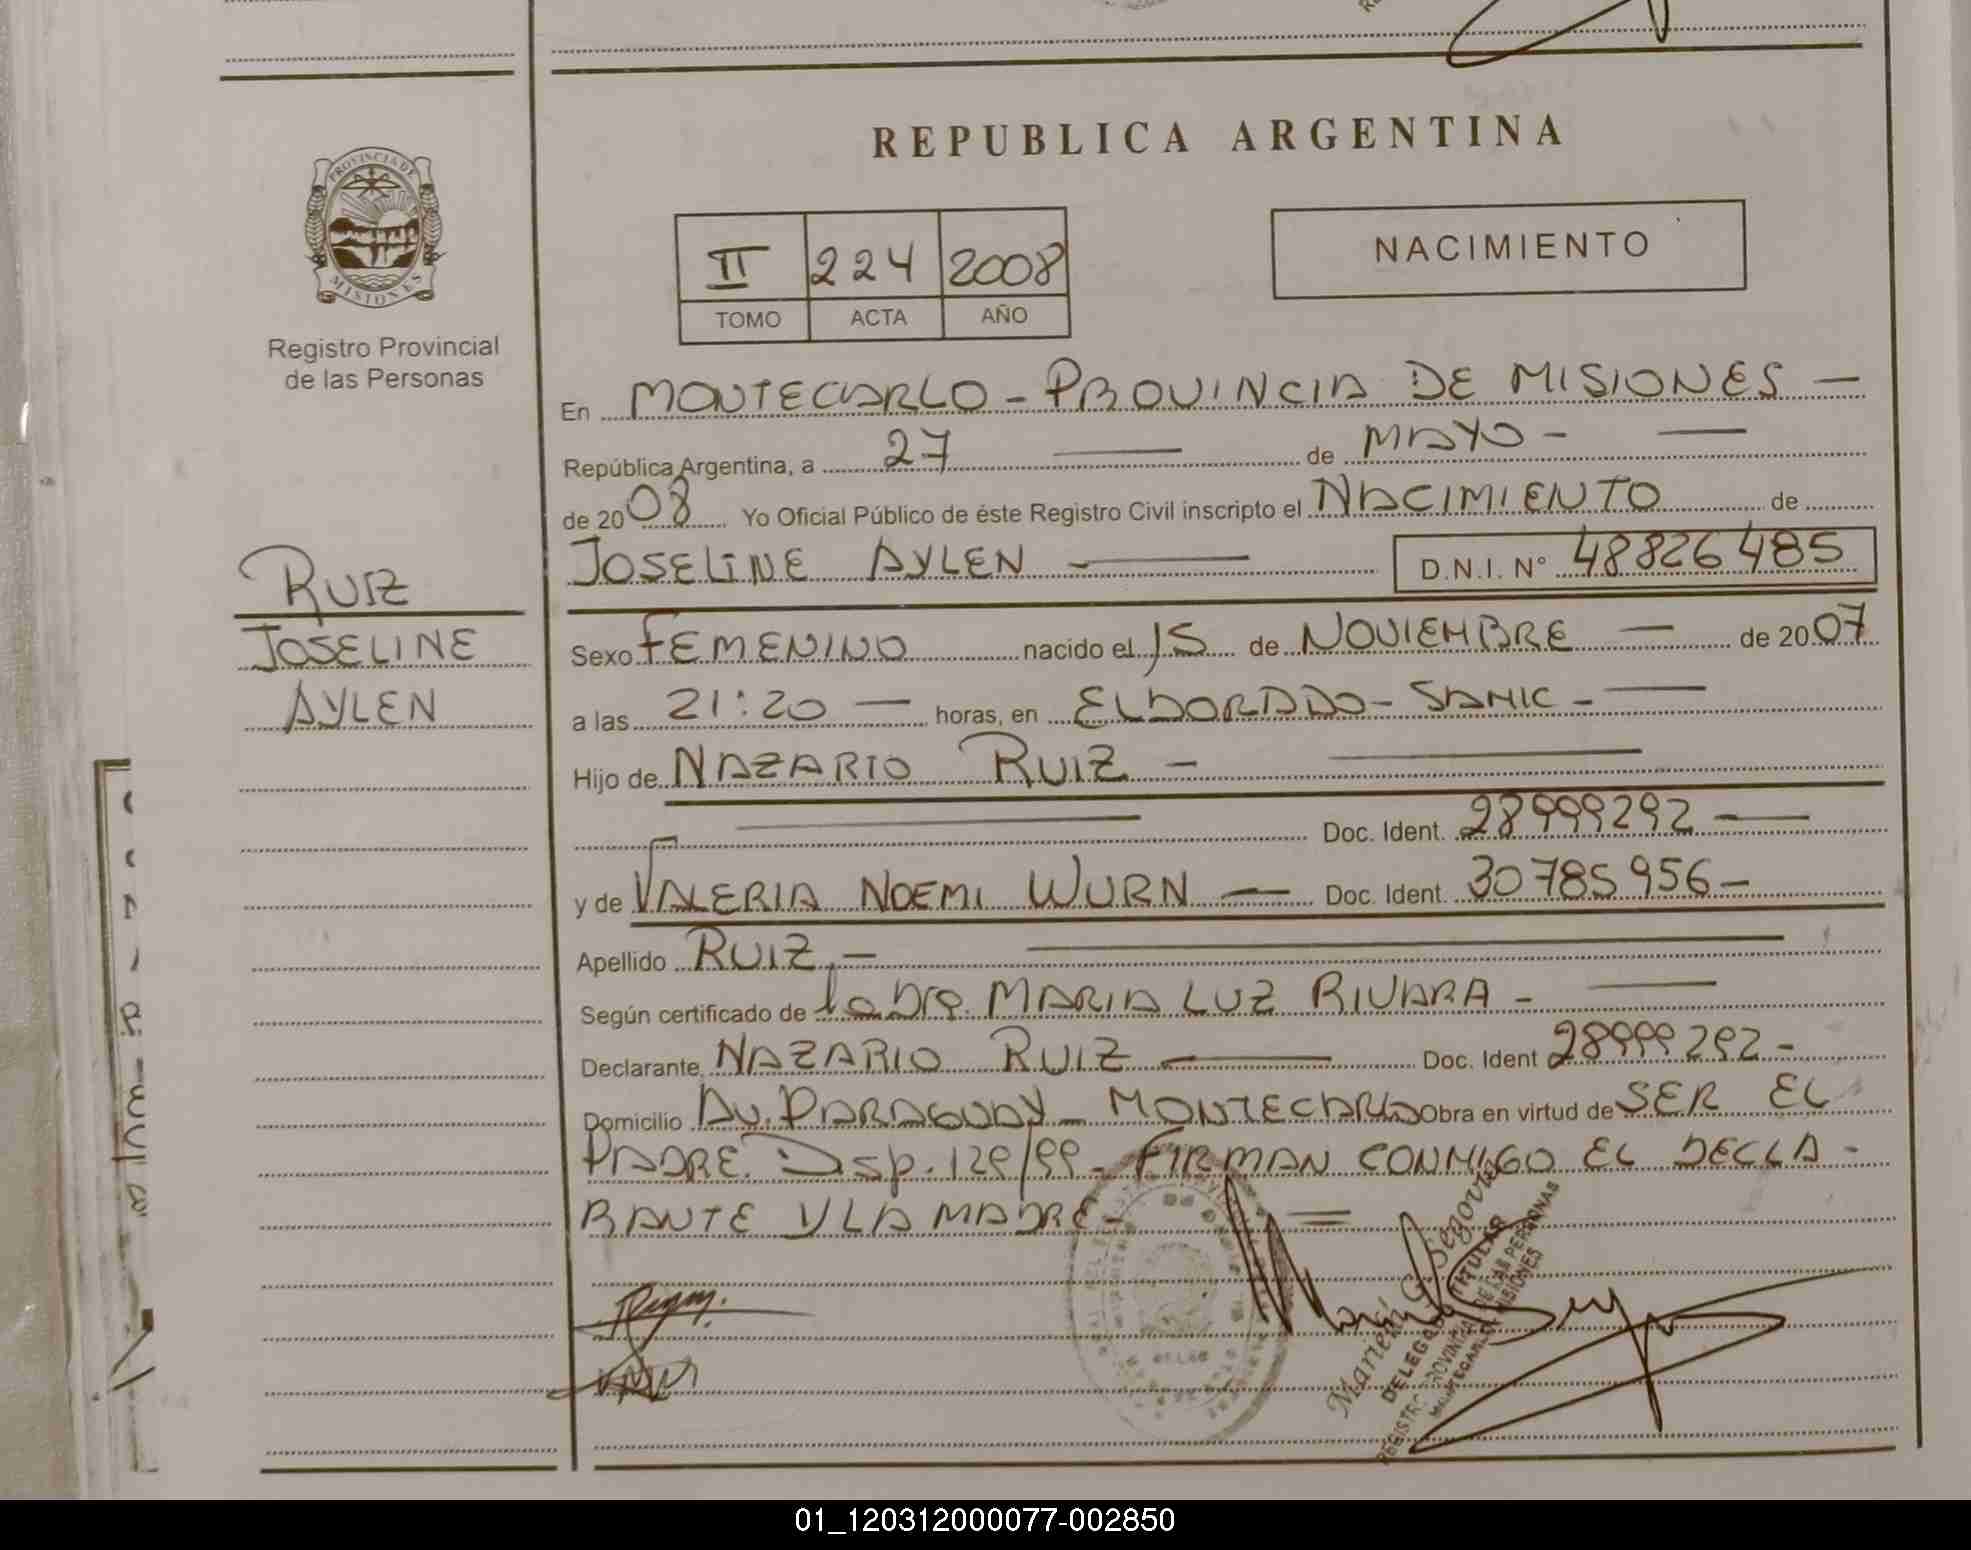 REPUBLICA ARGENTINA
PROVINCIA DE
MISIONES
Registro Provincial
de las Personas
II 224 2008
TOMO ACTA AÑO
NACIMIENTO
En MONTECARLO - PROVINCIA DE MISIONES —
República Argentina, a 27 — de MAYO - —
de 2008 Yo Oficial Público de éste Registro Civil inscripto el NACIMIENTO de
JOSELINE AYLEN — D.N.I. N° 48826485
RUIZ
JOSELINE
AYLEN
Sexo FEMENINO nacido el 15 de NOVIEMBRE — de 2007
a las 21:20 — horas, en ELDORADO - SAMIC - —
Hijo de NAZARIO RUIZ - —
— Doc. Ident. 28999292 —
y de VALERIA NOEMI WURN — Doc. Ident. 30785956 -
Apellido RUIZ.- —
Según certificado de MARIA LUZ RIVARA - —
Declarante NAZARIO RUIZ — Doc. Ident 28999292 -
Domicilio AV. PARAGUAY - MONTECARLO Obra en virtud de SER EL
PADRE. Disp. 129/99 - FIRMAN CONMIGO EL DECLA -
RANTE Y LA MADRE -
DELEGADO TITULAR
REGISTRO PROVINCIAL DE LAS PERSONAS
MONTECARLO MISIONES
01_120312000077-002850